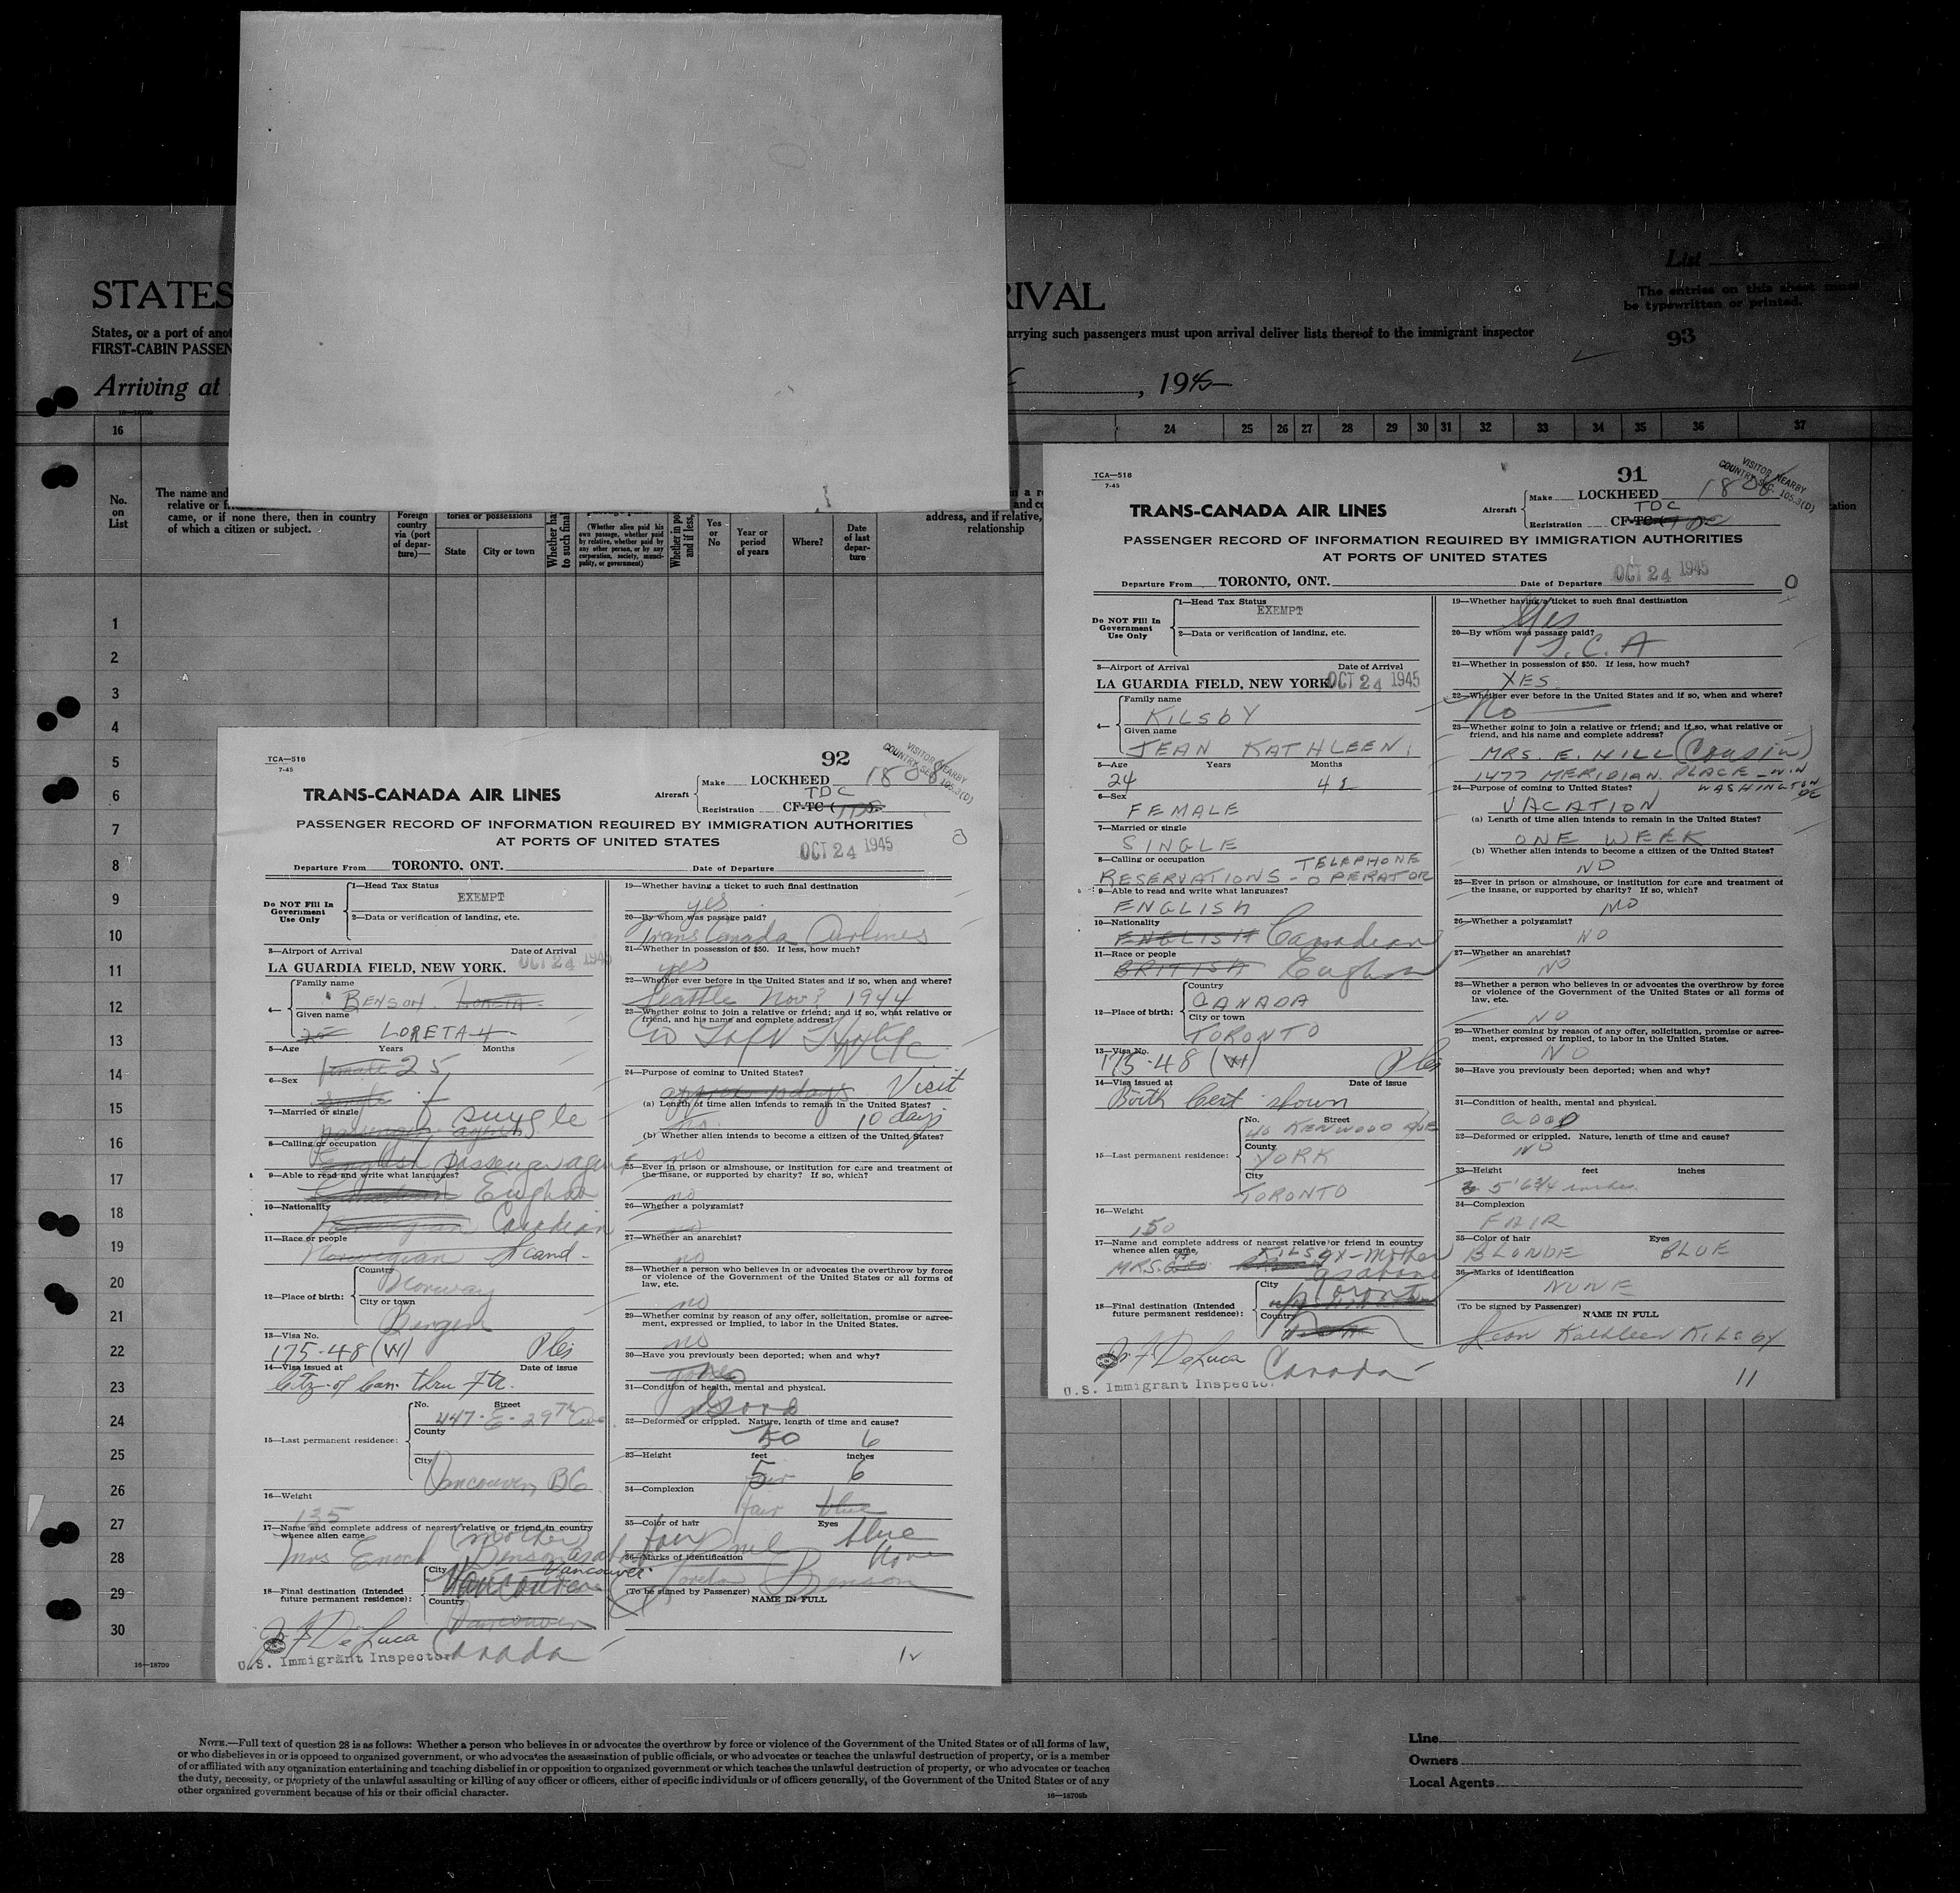 List
The entries on this sheet must
be typewritten or printed.
93
STATES
RIVAL
States, or a port of anot
arrying such passengers must upon arrival deliver lists thereof to the immigrant inspector
FIRST-CABIN PASSEN
Arriving at
, 1945
16—18709
16 24 25 26 27 28 29 30 31 32 33 34 35 36 37
No.
on
List
The name and
relative or fr
came, or if none there, then in country
of which a citizen or subject.
Foreign
country
via (port
of depar-
ture)—
tories or possessions
State City or town
Whether ha
to such final
(Whether alien paid his
own passage, whether paid
by relative, whether paid by
any other person, or by any
corporation, society, munici-
pality, or government)
Whether in po
and if less,
Yes
or
No
Year or
period
of years
Where?
Date
of last
depar-
ture
address, and if relative,
relationship
1
2
3
4
5
6
7
8
9
10
11
12
13
14
15
16
17
18
19
20
21
22
23
24
25
26
27
28
29
30
16—18709
TCA—518
7-45
91
VISITOR NEARBY
COUNTRY SEC. 105.3(D)
TRANS-CANADA AIR LINES
Aircraft
Make LOCKHEED 1808
TDC
Registration CF-TC
PASSENGER RECORD OF INFORMATION REQUIRED BY IMMIGRATION AUTHORITIES
AT PORTS OF UNITED STATES
Departure From TORONTO, ONT. Date of Departure OCT 24 1945
Do NOT Fill In
Government
Use Only
1—Head Tax Status
EXEMPT
2—Data or verification of landing, etc.
3—Airport of Arrival Date of Arrival
LA GUARDIA FIELD, NEW YORK. OCT 24 1945
4—
Family name
KILSBY
Given name
JEAN KATHLEEN
5—Age Years Months
24
6—Sex
FEMALE
7—Married or single
SINGLE
8—Calling or occupation TELEPHONE
RESERVATIONS - OPERATOR
9—Able to read and write what languages?
ENGLISH
10—Nationality
ENGLISH Canadian
11—Race or people
BRITISH English
12—Place of birth:
Country
CANADA
City or town
TORONTO
13—Visa No.
175-48 (W)
14—Visa issued at Date of issue
Birth Cert shown
15—Last permanent residence:
No. Street
40 KENWOOD AVE
County
YORK
City
TORONTO
16—Weight
150
17—Name and complete address of nearest relative or friend in country
whence alien came
MRS. KILSBY - Mother
as above
18—Final destination (Intended
future permanent residence):
City
Toronto
Country
Canada
DeLuca
U.S. Immigrant Inspector
19—Whether having a ticket to such final destination
Yes
20—By whom was passage paid?
T.C.A
21—Whether in possession of $50. If less, how much?
YES
22—Whether ever before in the United States and if so, when and where?
No
23—Whether going to join a relative or friend; and if so, what relative or
friend, and his name and complete address?
MRS. E. HILL (Cousin)
1477 MERIDIAN PLACE - N.W
WASHINGTON DC
24—Purpose of coming to United States?
VACATION
(a) Length of time alien intends to remain in the United States?
ONE WEEK
(b) Whether alien intends to become a citizen of the United States?
NO
25—Ever in prison or almshouse, or institution for care and treatment of
the insane, or supported by charity? If so, which?
NO
26—Whether a polygamist?
NO
27—Whether an anarchist?
NO
28—Whether a person who believes in or advocates the overthrow by force
or violence of the Government of the United States or all forms of
law, etc.
NO
29—Whether coming by reason of any offer, solicitation, promise or agree-
ment, expressed or implied, to labor in the United States.
NO
30—Have you previously been deported; when and why?
31—Condition of health, mental and physical.
GOOD
32—Deformed or crippled. Nature, length of time and cause?
NO
33—Height feet inches
5' 6 3/4 inches
34—Complexion
FAIR
35—Color of hair Eyes
BLONDE BLUE
36—Marks of identification
NONE
(To be signed by Passenger) NAME IN FULL
Jean Kathleen Kilsby
11
TCA—518
7-45
92
VISITOR NEARBY
COUNTRY SEC. 105.3(D)
TRANS-CANADA AIR LINES
Aircraft
Make LOCKHEED 1808
TDC
Registration CF-TC
PASSENGER RECORD OF INFORMATION REQUIRED BY IMMIGRATION AUTHORITIES
AT PORTS OF UNITED STATES
OCT 24 1945
Departure From TORONTO, ONT. Date of Departure
Do NOT Fill In
Government
Use Only
1—Head Tax Status
EXEMPT
2—Data or verification of landing, etc.
3—Airport of Arrival Date of Arrival
LA GUARDIA FIELD, NEW YORK. OCT 24 1945
4—
Family name
BENSON
Given name
LORETA
5—Age Years Months
25
6—Sex
f
7—Married or single
single
8—Calling or occupation
passenger agent
9—Able to read and write what languages?
English
10—Nationality
Canadian
11—Race or people
Norwegian Scand.
12—Place of birth:
Country
Norway
City or town
Bergen
13—Visa No.
175-48 (W)
14—Visa issued at Date of issue
Citz. of Can. thru Ftr.
15—Last permanent residence:
No. Street
447-E-29th Ave.
County
City
Vancouver, BC
16—Weight
135
17—Name and complete address of nearest relative or friend in country
whence alien came
(mother)
Mrs Enoch Benson
18—Final destination (Intended
future permanent residence):
City
Vancouver
Country
Vancouver
Canada
DeLuca
U.S. Immigrant Inspector
19—Whether having a ticket to such final destination
yes
20—By whom was passage paid?
Trans Canada Airlines
21—Whether in possession of $50. If less, how much?
yes
22—Whether ever before in the United States and if so, when and where?
Seattle Nov? 1944
23—Whether going to join a relative or friend; and if so, what relative or
friend, and his name and complete address?
24—Purpose of coming to United States?
approx 10 days Visit
(a) Length of time alien intends to remain in the United States?
no. 10 days
(b) Whether alien intends to become a citizen of the United States?
no
25—Ever in prison or almshouse, or institution for care and treatment of
the insane, or supported by charity? If so, which?
no
26—Whether a polygamist?
no
27—Whether an anarchist?
no
28—Whether a person who believes in or advocates the overthrow by force
or violence of the Government of the United States or all forms of
law, etc.
no
29—Whether coming by reason of any offer, solicitation, promise or agree-
ment, expressed or implied, to labor in the United States.
no
30—Have you previously been deported; when and why?
31—Condition of health, mental and physical.
Good
32—Deformed or crippled. Nature, length of time and cause?
33—Height feet inches
5 6
34—Complexion
fair blue
35—Color of hair Eyes
fair blue
36—Marks of identification
none
Loreta Benson
(To be signed by Passenger) NAME IN FULL
NOTE.—Full text of question 28 is as follows: Whether a person who believes in or advocates the overthrow by force or violence of the Government of the United States or of all forms of law,
or who disbelieves in or is opposed to organized government, or who advocates the assassination of public officials, or who advocates or teaches the unlawful destruction of property, or is a member
of or affiliated with any organization entertaining and teaching disbelief in or opposition to organized government or which teaches the unlawful destruction of property, or who advocates or teaches
the duty, necessity, or propriety of the unlawful assaulting or killing of any officer or officers, either of specific individuals or of officers generally, of the Government of the United States or of any
other organized government because of his or their official character.
16—18709b
Line
Owners
Local Agents